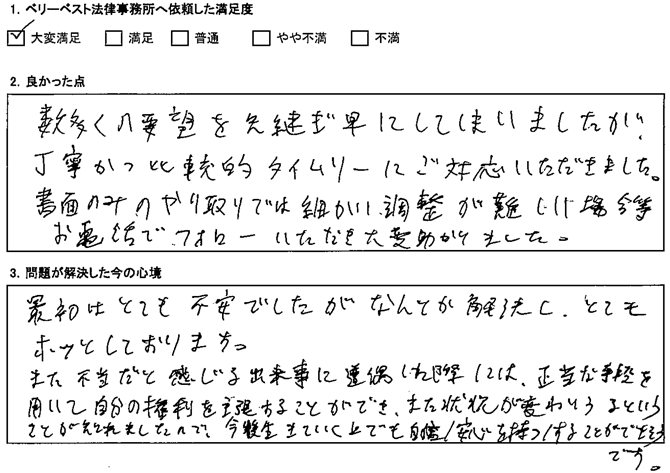 1. ベリーベスト法律事務所へ依頼した満足度
大変満足 満足 普通 やや不満 不満
2. 良かった点
数多くの要望を矢継ぎ早にしてしまいましたが、
丁寧かつ比較的タイムリーにご対応いただきました。
書面のみのやり取りでは細かい調整が難しい場合等
お電話でフォローいただき大変助かりました。
3. 問題が解決した今の心境
最初はとても不安でしたがなんとか解決し、とても
ホッとしております。
また不当だと感じる出来事に遭遇した際には、正当な手段を
用いて自分の権利を主張することができ、また状況が変わりうるという
ことが知れましたので、今後生きていく上でも自信/安心を持つ/することができそう
です。